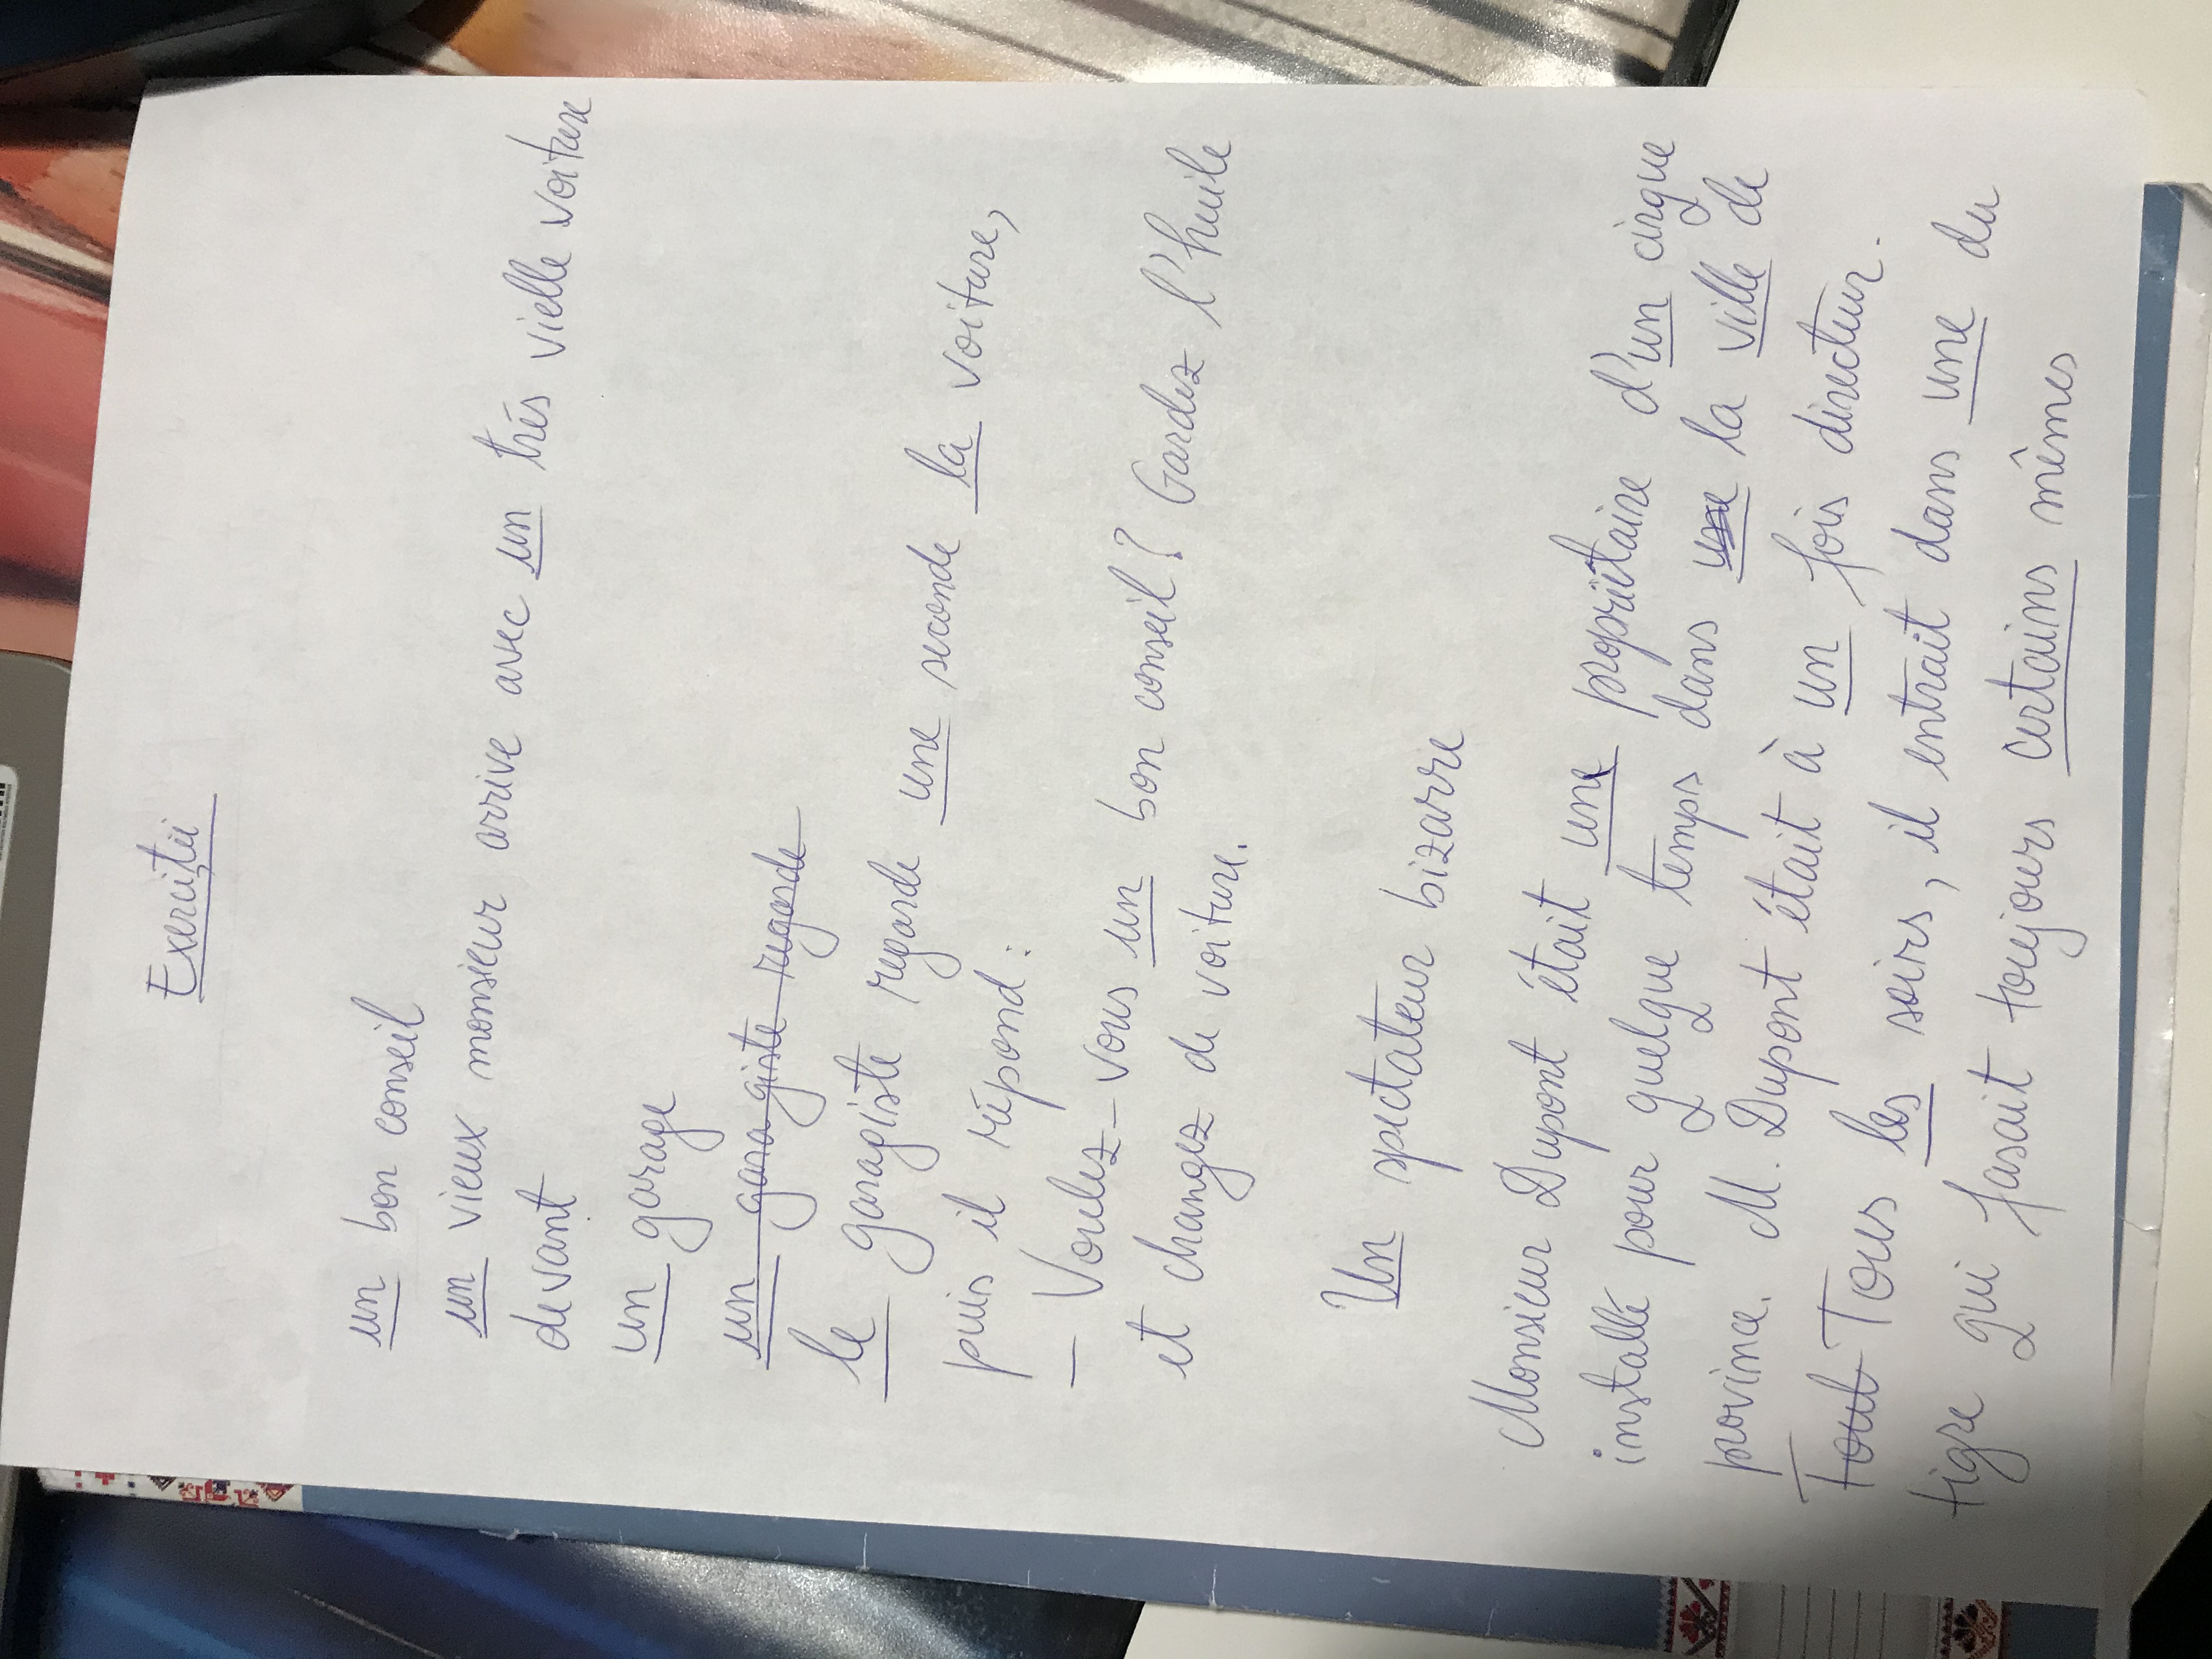 Exerciții
un bon conseil
un vieux monsieur arrive avec un très vielle voiture
devant
un garage
un garagiste regarde
le garagiste regarde une seconde la voiture,
puis il répond :
– Voulez-vous un bon conseil? Gardez l'huile
et changez de voiture.
Un spectateur bizarre
Monsieur Dupont était une propriétaire d'un cirque
installé pour quelque temps dans une la ville de
province. M. Dupont était à un fois directeur.
Tout Tous les soirs, il entrait dans une du
tigre qui fasait toujours certains mêmes